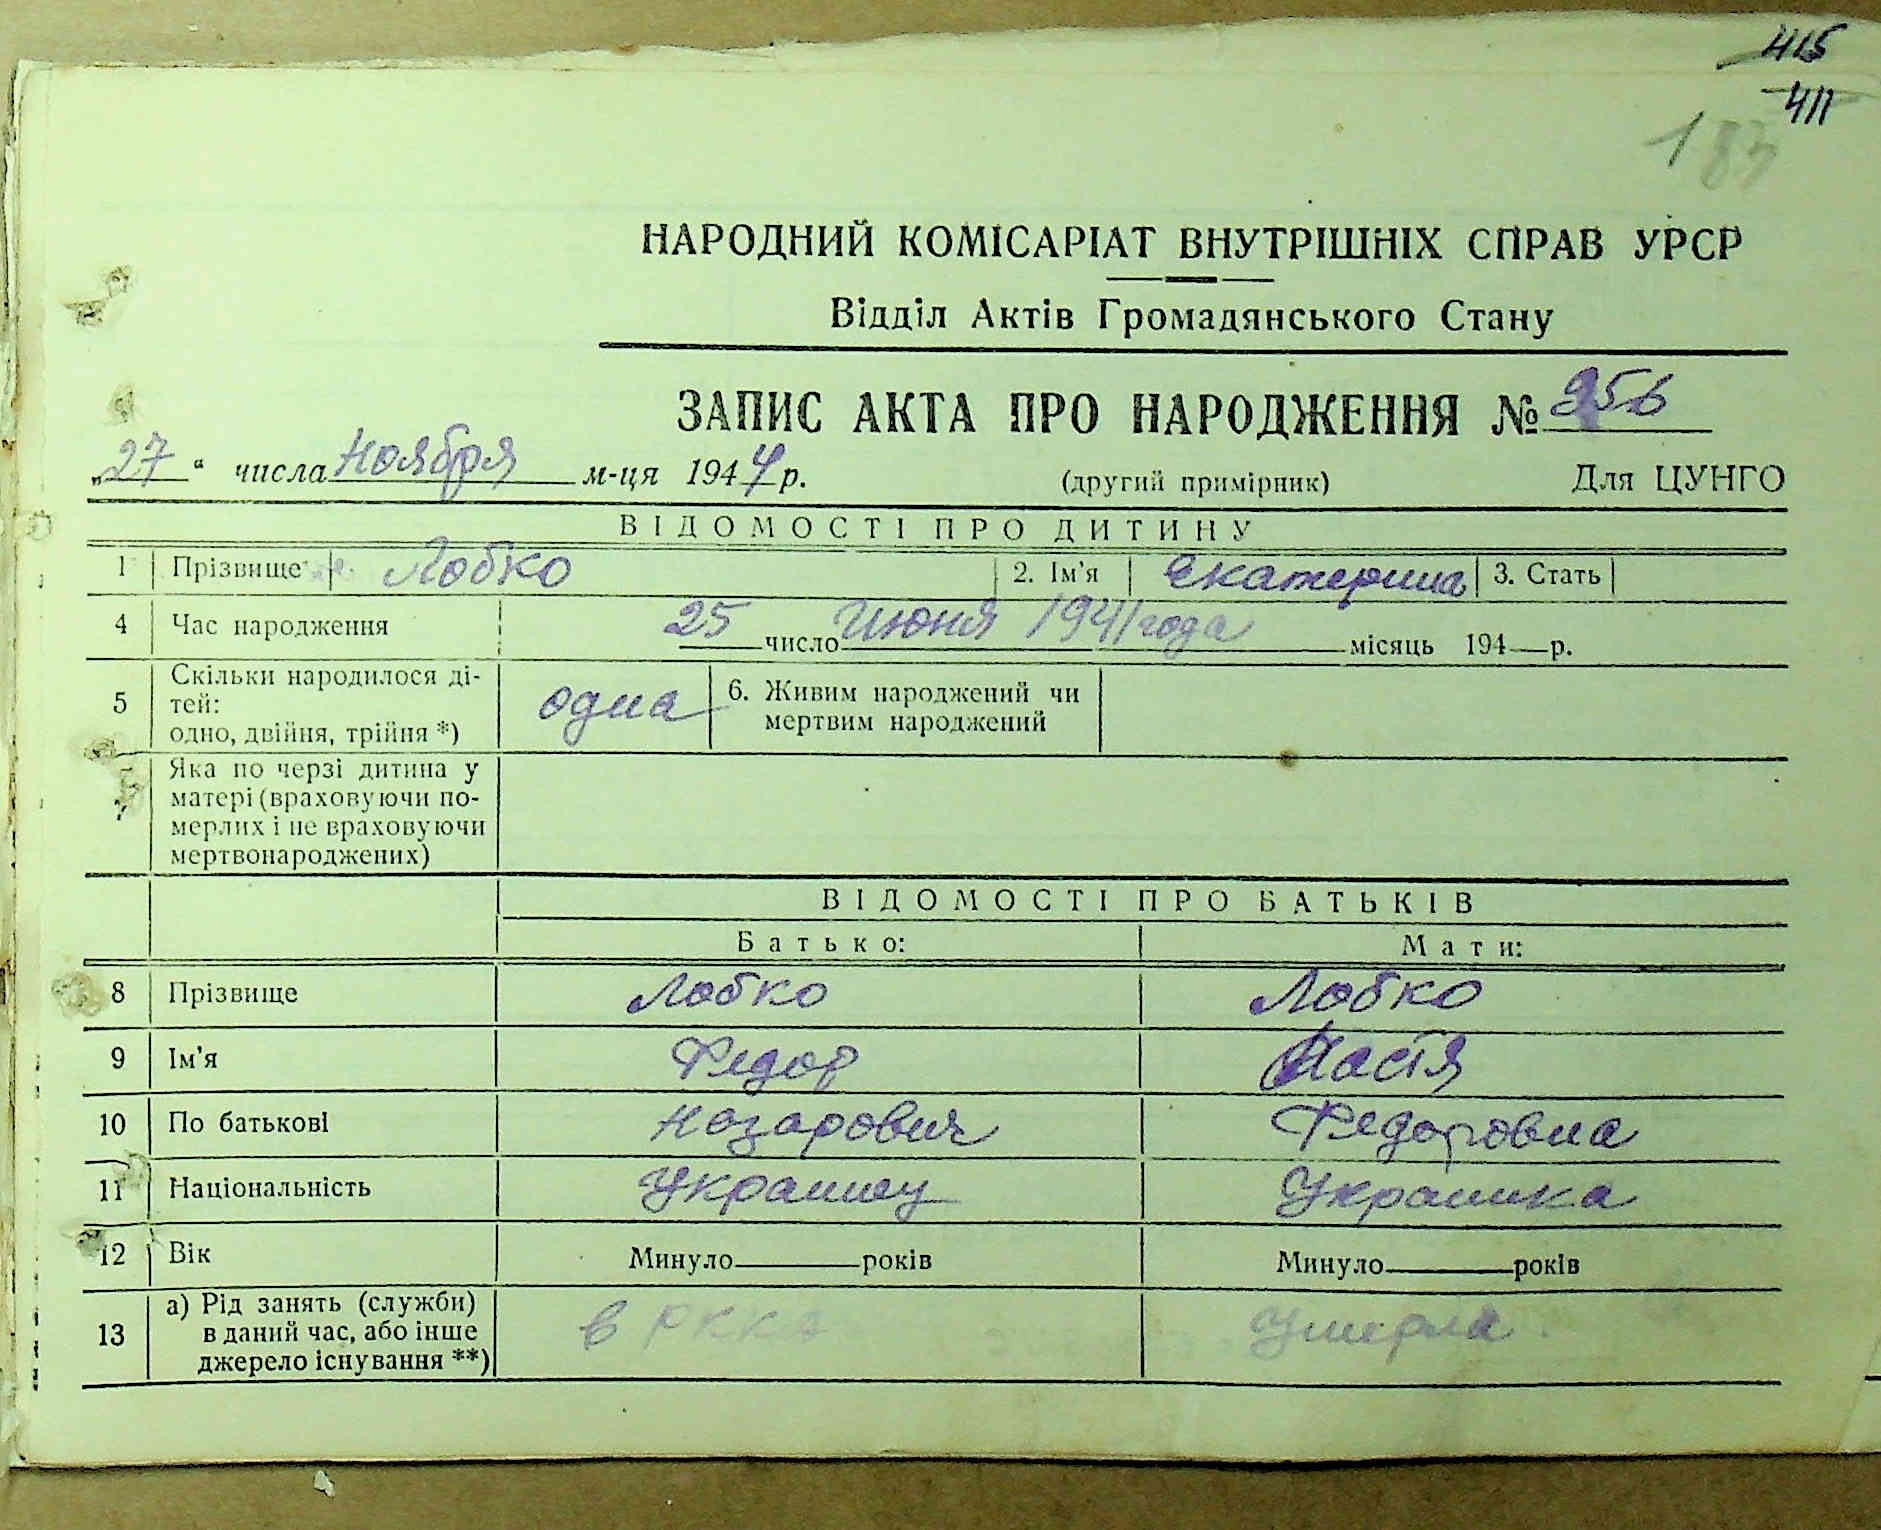 415
411
183
НАРОДНИЙ КОМІСАРІАТ ВНУТРІШНІХ СПРАВ УРСР
Відділ Актів Громадянського Стану
ЗАПИС АКТА ПРО НАРОДЖЕННЯ № 956
„27“ числа ноября м-ця 1944 р. (другий примірник) Для ЦУНГО
ВІДОМОСТІ ПРО ДИТИНУ
1 Прізвище Лобко 2. Ім'я Екатерина 3. Стать
4 Час народження 25 число Июня 1941 года місяць 194 р.
5 Скільки народилося ді-
тей:
одно, двійня, трійня *) одна 6. Живим народжений чи
мертвим народжений
7 Яка по черзі дитина у
матері (враховуючи по-
мерлих і не враховуючи
мертвонароджених)
ВІДОМОСТІ ПРО БАТЬКІВ
Батько: Мати:
8 Прізвище Лобко Лобко
9 Ім'я Федор Настя
10 По батькові Назарович Федоровна
11 Національність Украинец Украинка
12 Вік Минуло років Минуло років
13 а) Рід занять (служби)
в даний час, або інше
джерело існування **) в РККА Умерла